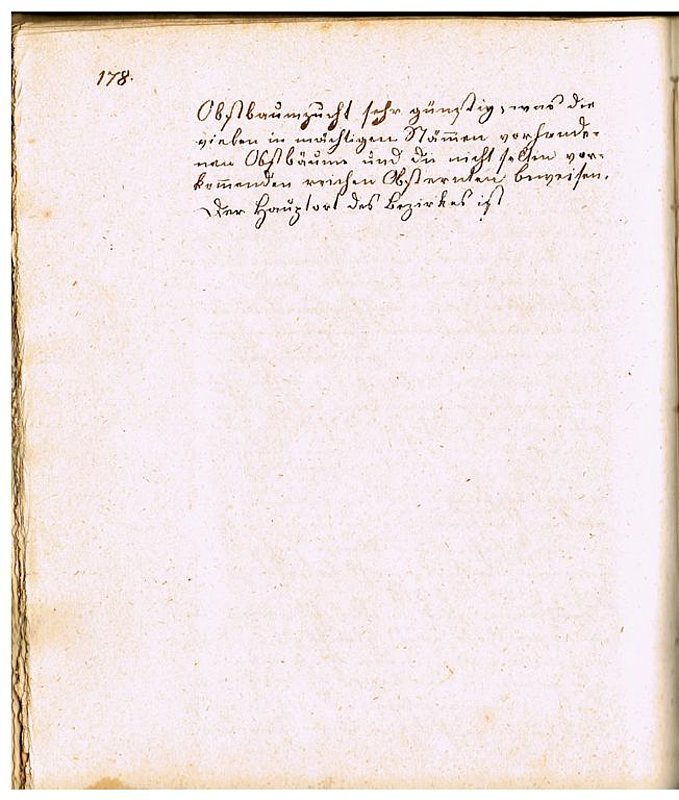 178.
Obstbaumzucht sehr günstig, was die
vielen in mächtigen Stämmen vorhande-
nen Obstbäume und die nicht selten vor-
kommenden reichen Obsternten beweisen.
Der Hauptort des Bezirkes ist